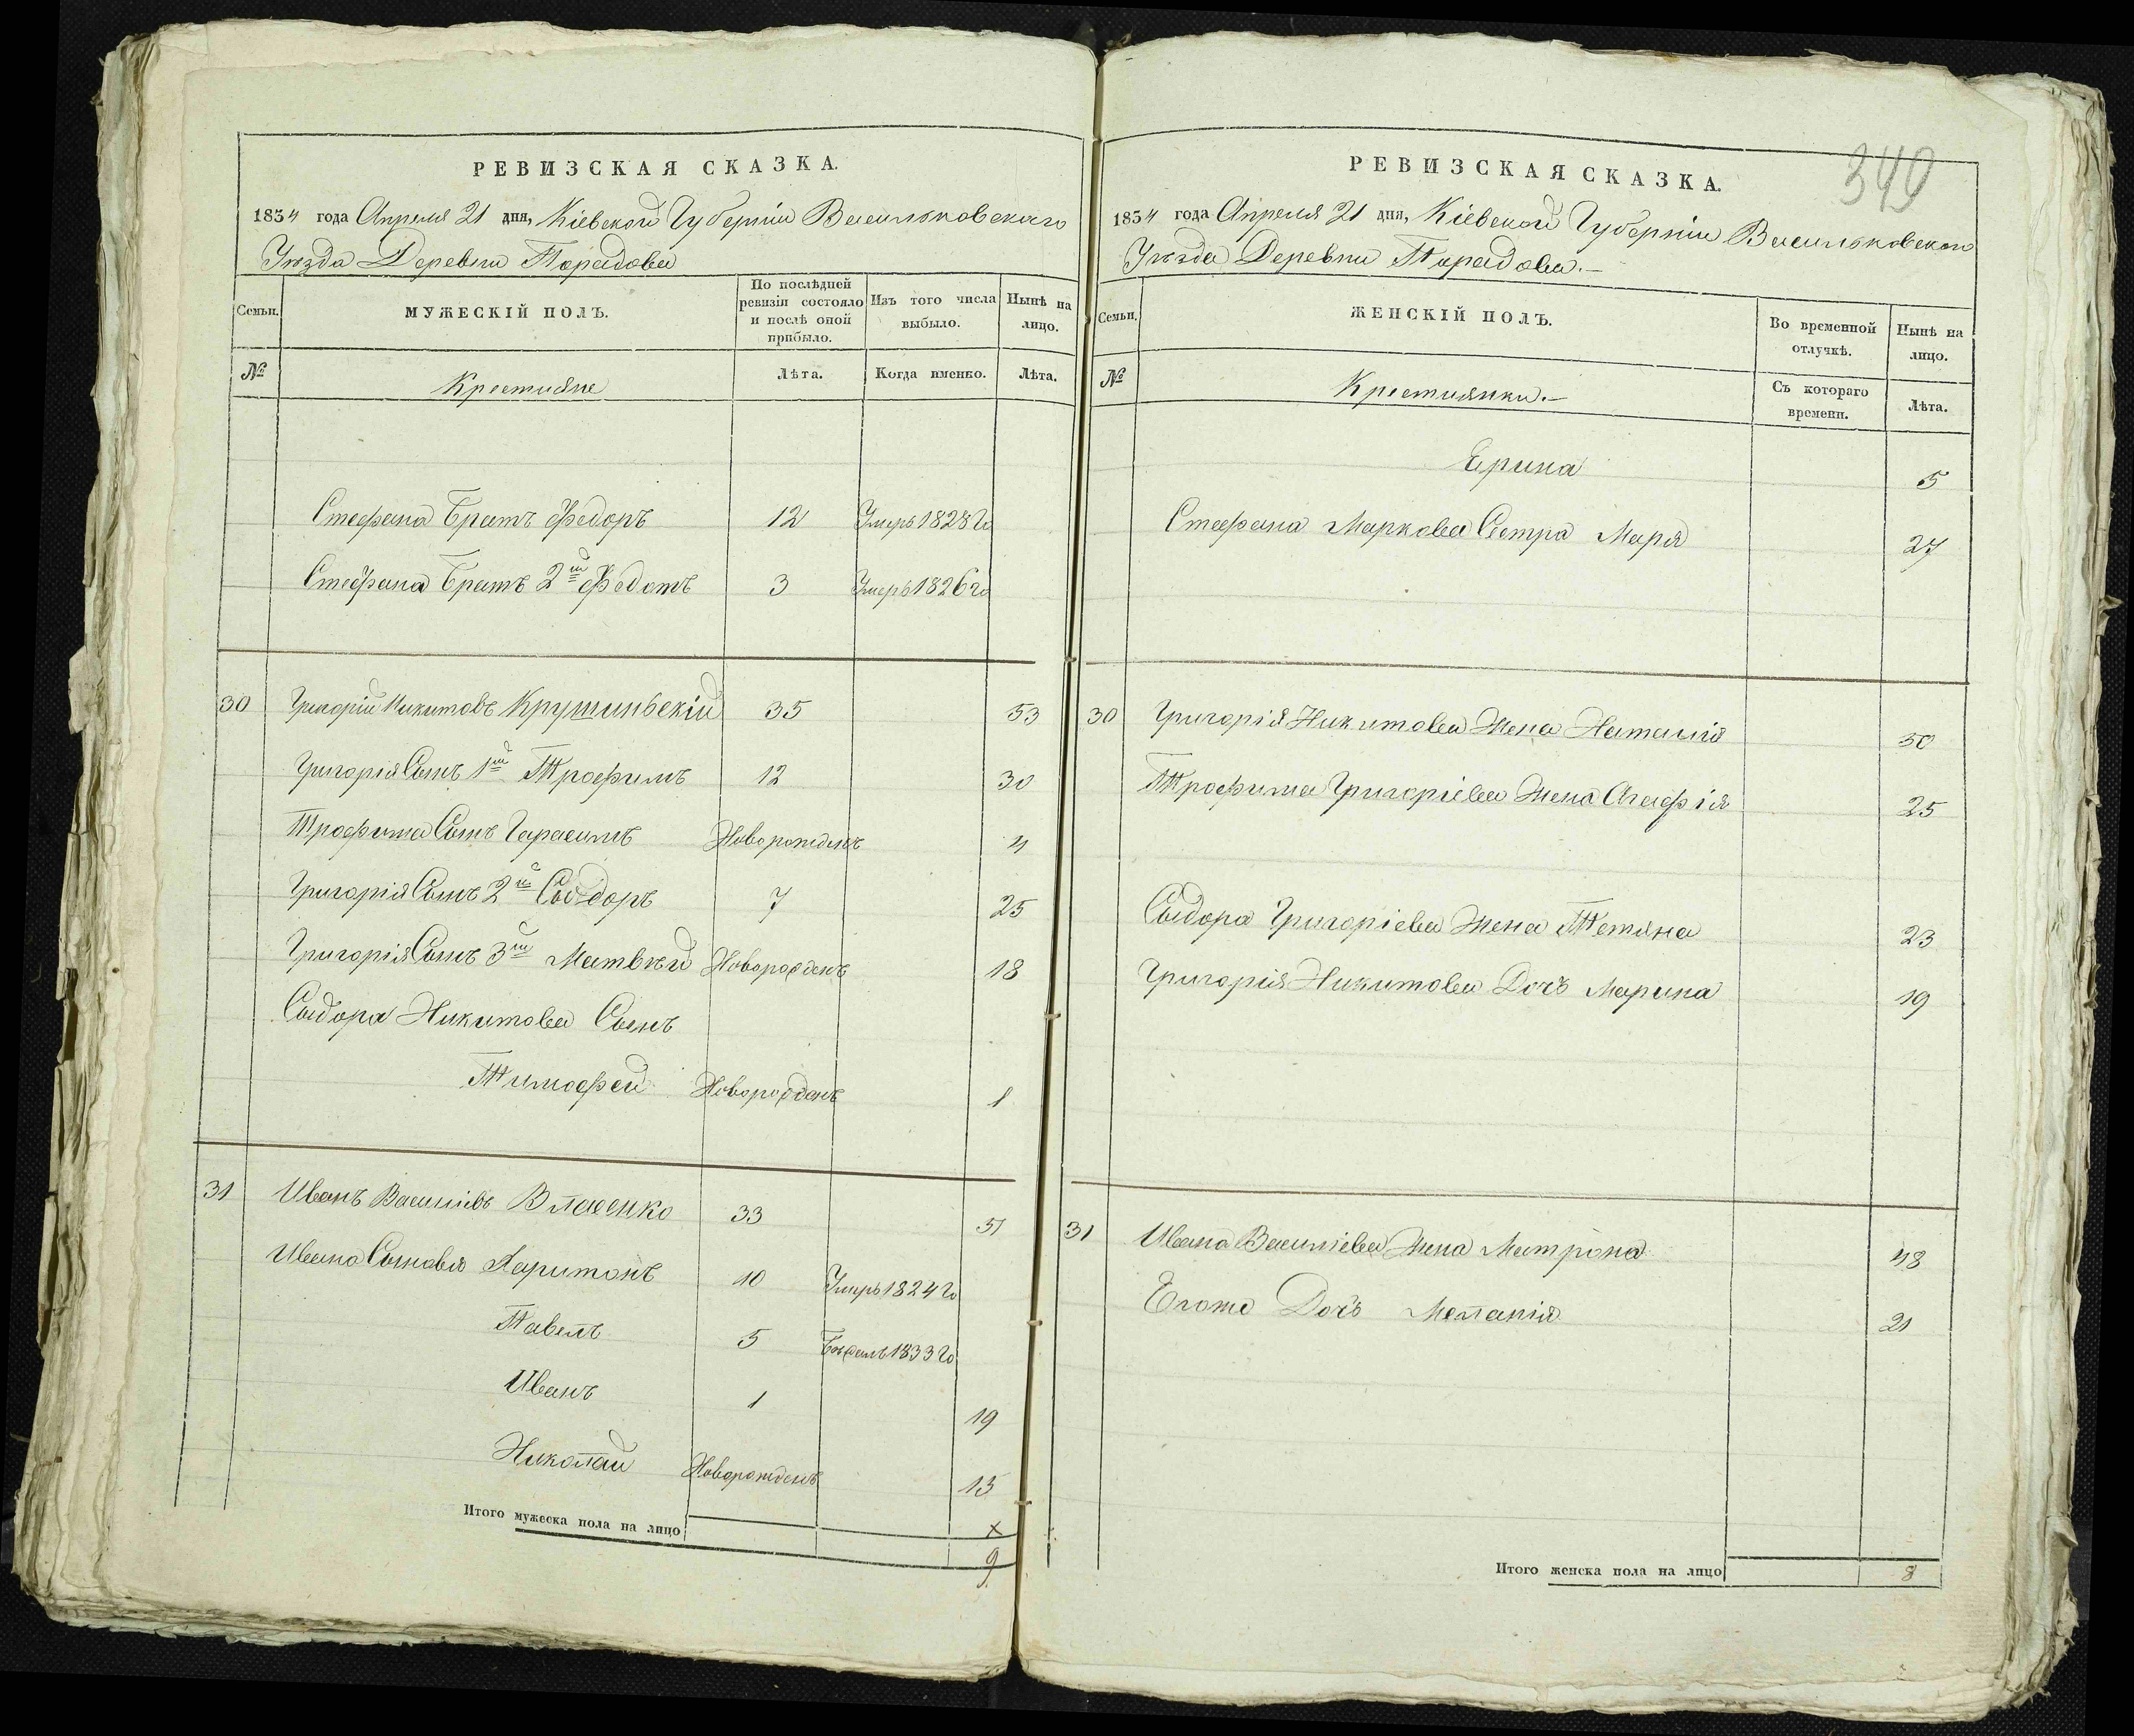 РЕВИЗСКАЯ СКАЗКА.
1834 года Апреля 21 дня, Кіевской Губерніи Васильковскаго
Уѣзда Деревни Порадовы
Семьи.
МУЖЕСКІЙ ПОЛЪ.
По послѣдней ревизіи состояло и послѣ оной прибыло.
Изъ того числа выбыло.
Нынѣ на лицо.
№
Крестияне
Лѣта.
Когда именно.
Лѣта.
Стефана Братъ Федоръ 12 Умеръ 1828 го
Стефана Братъ 2й Федотъ 3 Умеръ 1826 го
30 Григорій Никитовъ Крушинвскій 35 53
Григорія Сынъ 1й Трофимъ 12 30
Трофима Сынъ Герасимъ Новорожденъ 4
Григорія Сынъ 2й Сыдоръ 7 25
Григорія Сынъ 3й Матвѣй Новорожденъ 18
Сыдора Никитова Сынъ
Тимофей Новорожденъ 1
31 Иванъ Василіевъ Власенко 33 51
Ивана Сыновья Харитонъ 10 Умеръ 1824 го
Павелъ 5 Бѣжалъ 1833 го
Иванъ 1 19
Николай Новорожденъ 15
Итого мужеска пола на лицо
9
РЕВИЗСКАЯ СКАЗКА.
340
1834 года Апреля 21 дня, Кіевской Губерніи Васильковскаго
Уѣзда Деревни Порадовы.
Семьи.
ЖЕНСКІЙ ПОЛЪ.
Во временной отлучкѣ.
Нынѣ на лицо.
№
Крестиянки.
Съ котораго времени.
Лѣта.
Ерина 5
Стефана Маркова Сестра Марія 27
30 Григорія Никитова Жена Наталия 50
Трофима Григоріева Жена Агафія 25
Сыдора Григоріева Жена Тетяна 23
Григорія Никитова Дочъ Марина 19
31 Ивана Василіева Жена Матрона 48
Егоже Дочъ Меланія 21
Итого женска пола на лицо 8